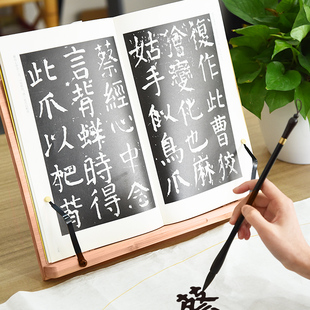 復作此曹狡
獪變化也麻
姑手似鳥爪
蔡經心中念
言背蛘時得
此爪以杷背
蔡